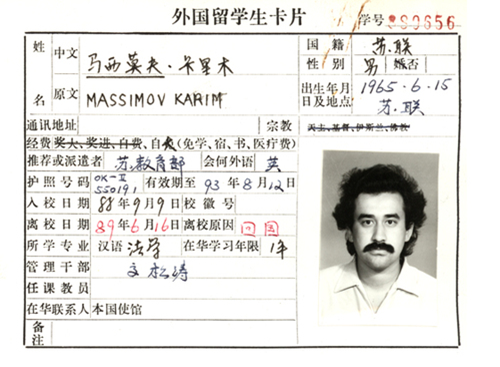 外国留学生卡片
学号 890656
姓名 中文 马西莫夫·卡里木 国籍 苏联
性别 男 婚否
原文 MASSIMOV KARIM 出生年月日及地点 1965.6.15 苏·联
通讯地址 宗教 天主、基督、伊斯兰、佛教
经费 奖大、奖进、自费、自大(免学、宿、书、医疗费)
推荐或派遣者 苏.教育部 会何外语 英
护照号码 OK-II 550191 有效期至 93年8月12日
入校日期 88年9月9日 校徽号
离校日期 89年6月16日 离校原因 回国
所学专业 汉语 法学 在华学习年限 1年
管理干部
任课教员
在华联系人本国使馆
备注